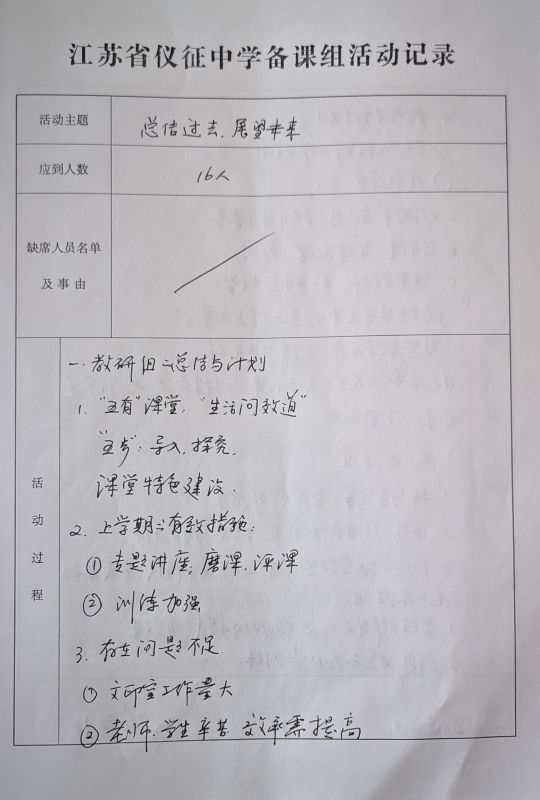 江苏省仪征中学备课组活动记录
活动主题
总结过去、展望未来
应到人数
16人
缺席人员名单
及事由
活动过程
一.教研组:总结与计划
1. "五有"课堂:"生活问效道"
"五步": 导入.探究.
课堂特色建设.
2. 上学期:有效措施:
① 专题讲座,磨课.评课
② 训练加强
3. 存在问题不足
① 文印室工作量大
② 老师.学生辛苦.效率需提高